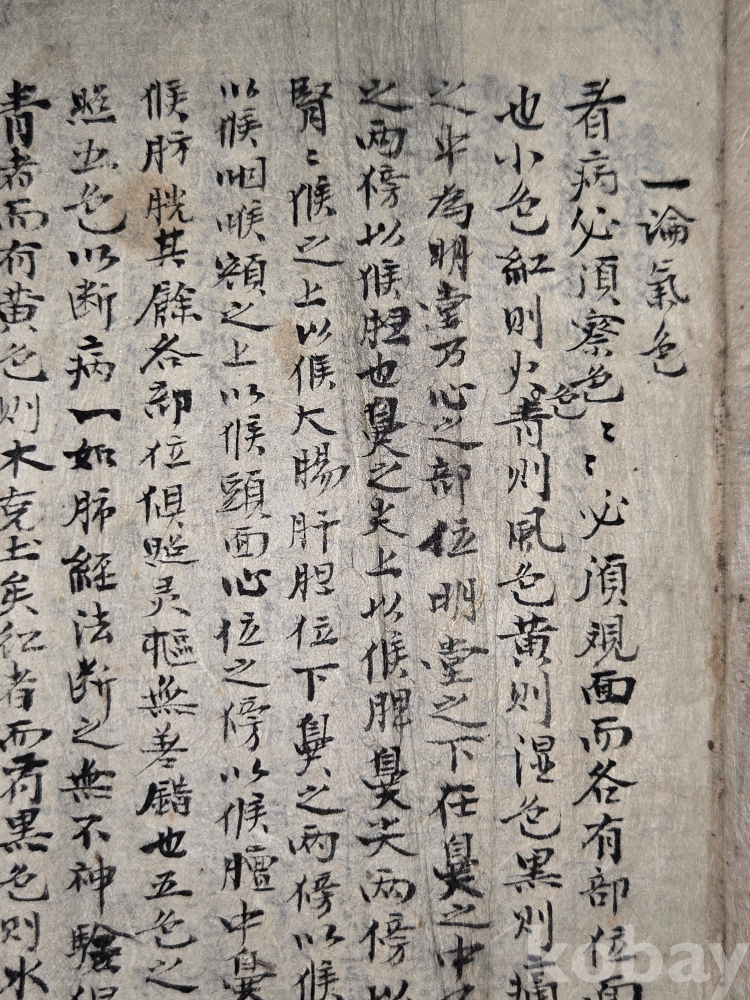 一論氣色
看病必須察色〻〻必須觀面而各有部位面
也小色紅則火色青則風色黃則湿色黑則痛
之平為明堂乃心之部位明堂之下在鼻之中
之两傍以候胆也鼻之尖上以候胆鼻尖两傍以
腎〻候之上以候大腸肝胆位下鼻之两傍以候
以候咽喉額之上以候頭面心位之傍以候膻中鼻
候肪胱其餘各部位俱照灵樞無差錯也五色之
照五色以断病一如肺經法断之無不神驗但
青者而有黃色則木克土矣紅者而有黑色則水
kobay